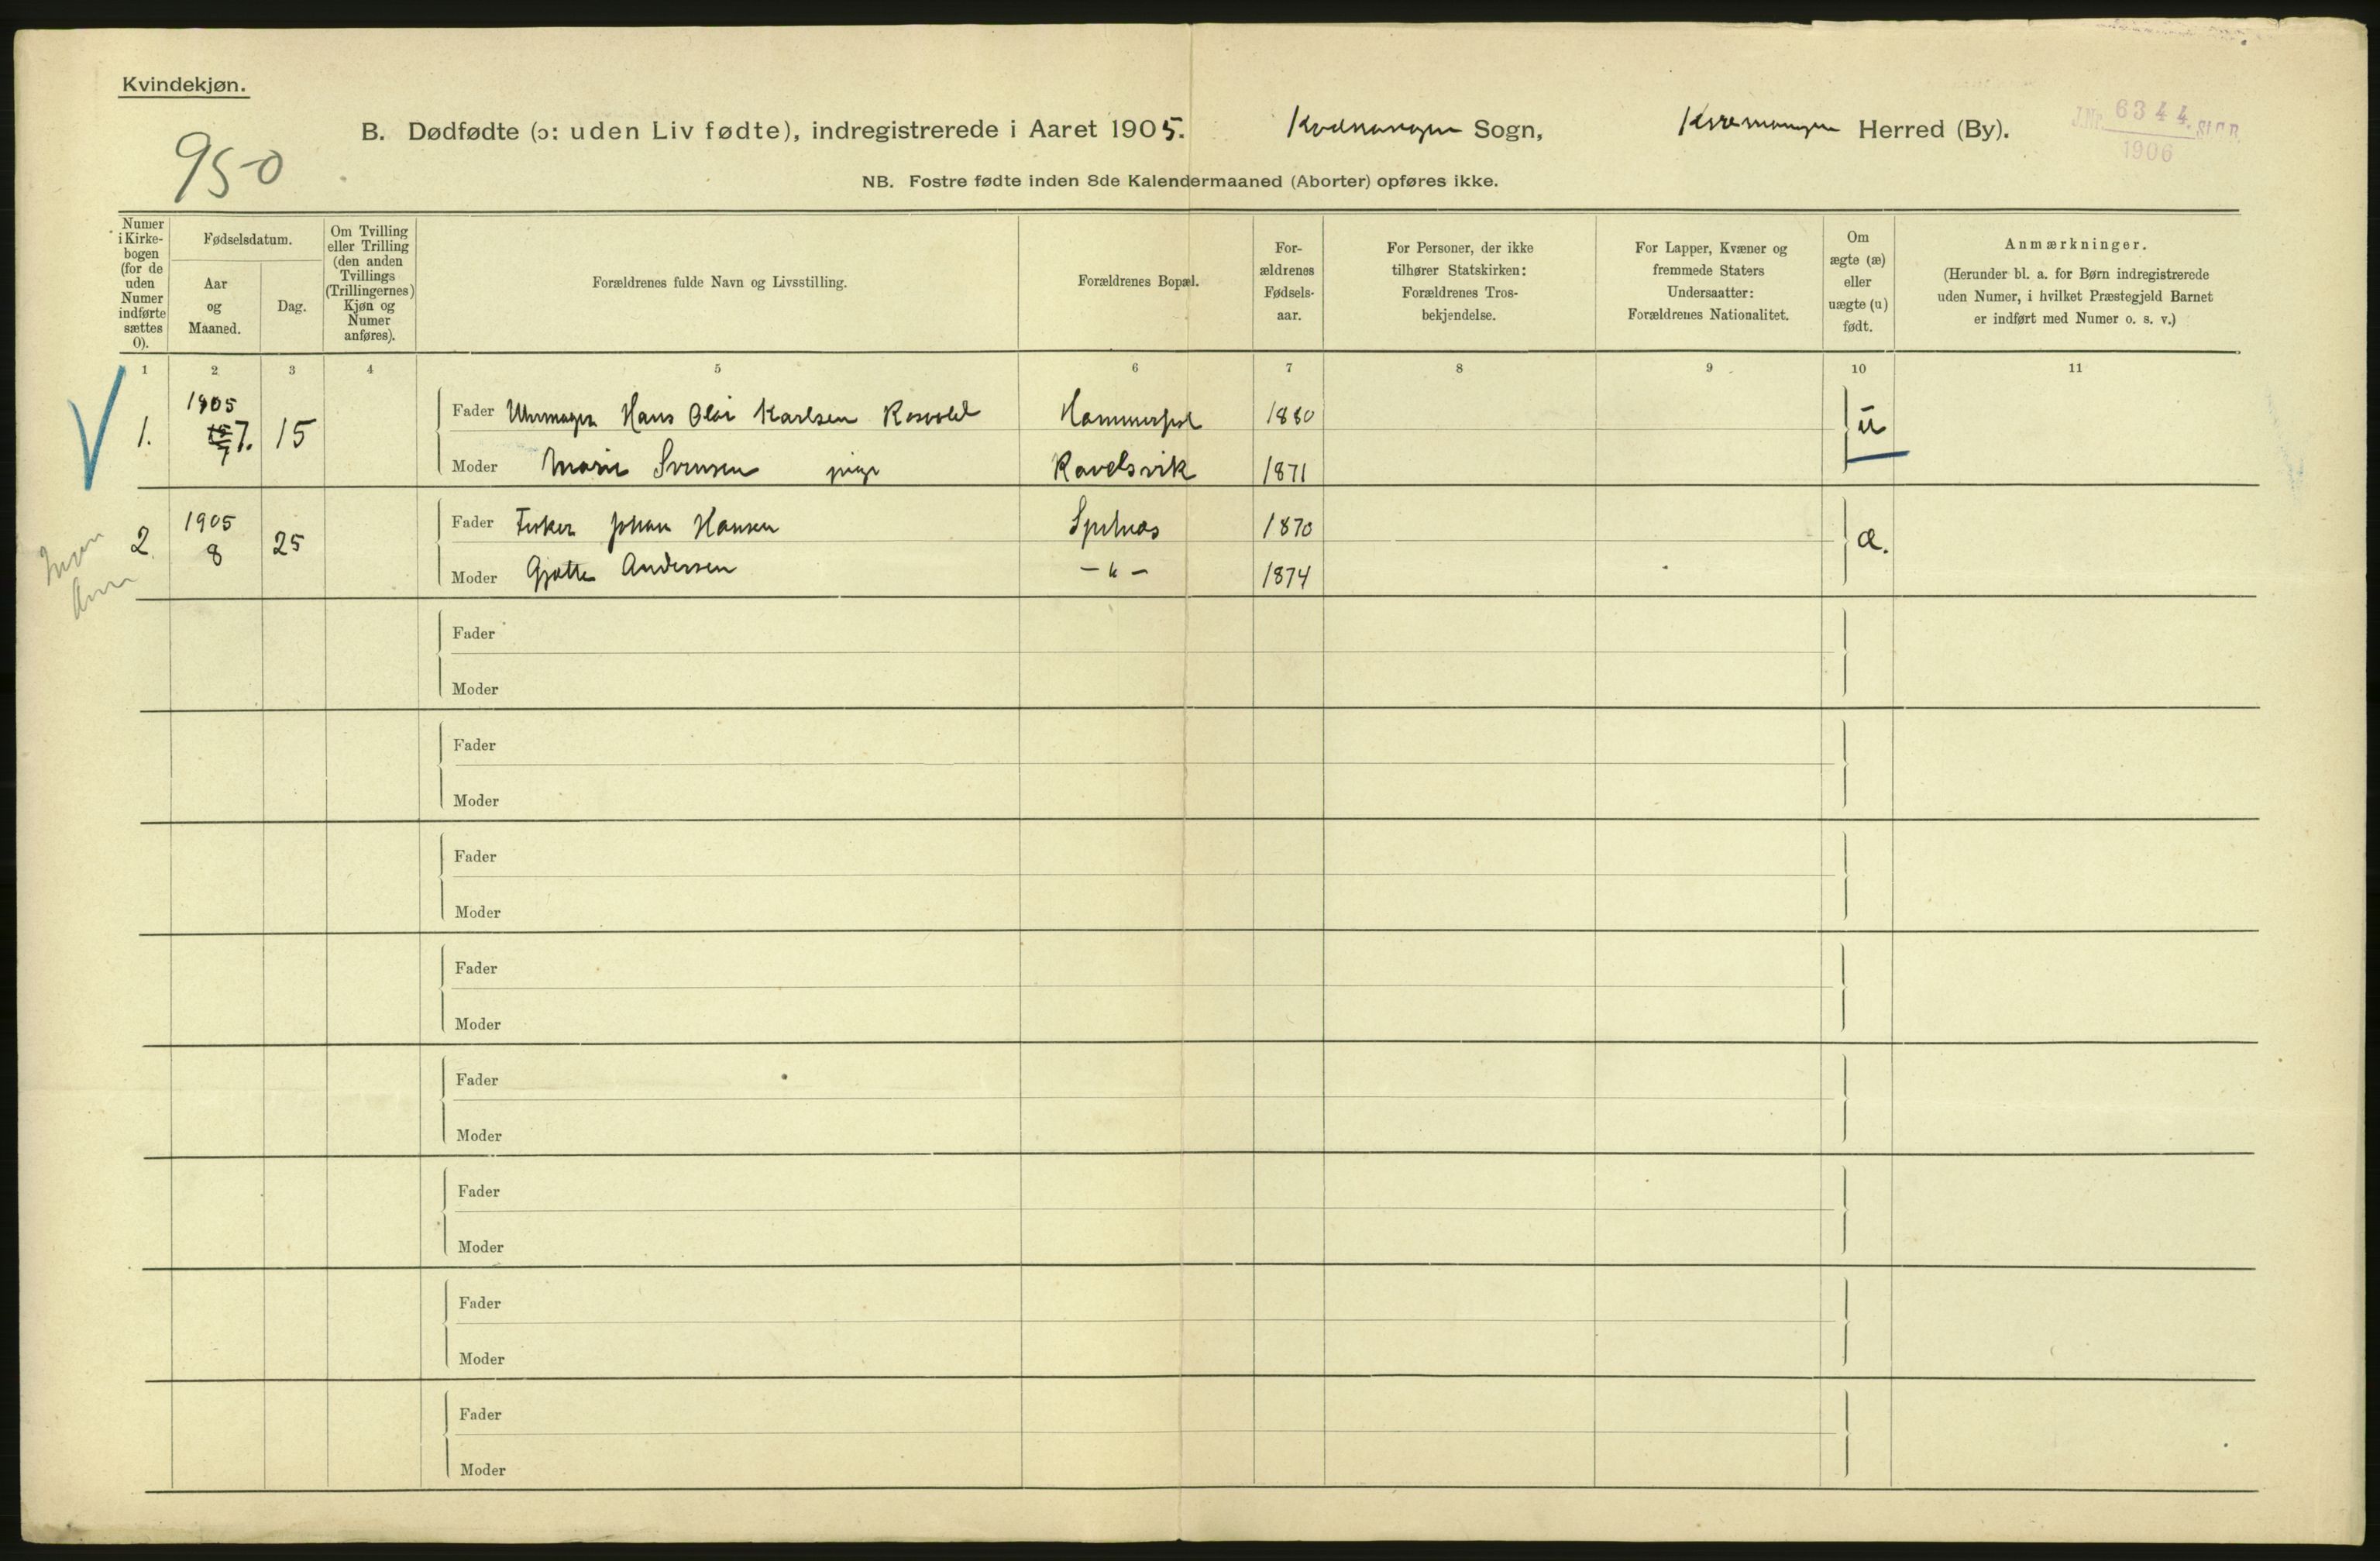 Kvindekjøn.
950
B. Dødfødte (ɔ: uden Liv fødte), indregistrerede i Aaret 1905. Kvænangen Sogn, Herred (By).
J.Nr. 6344. St.C.B.
1906
NB. Fostre fødte inden 8de Kalendermaaned (Aborter) opføres ikke.
Numer i Kirke-bogen (for de uden Numer indførte sættes 0).
Fødselsdatum.
Aar og Maaned.
Dag.
Om Tvilling eller Trilling (den anden Tvillings (Trillingernes) Kjøn og Numer anføres).
Forældrenes fulde Navn og Livsstilling.
Forældrenes Bopæl.
For-ældrenes Fødsels-aar.
For Personer, der ikke tilhører Statskirken: Forældrenes Tros-bekjendelse.
For Lapper, Kvæner og fremmede Staters Undersaatter: Forældrenes Nationalitet.
Om ægte (æ) eller uægte (u) født.
Anmærkninger.
(Herunder bl. a. for Børn indregistrerede uden Numer, i hvilket Præstegjeld Barnet er indført med Numer o. s. v.)
1 2 3 4 5 6 7 8 9 10 11
1. 1905 7. 15 Fader Uhrmager Hans Olai Karlsen Rosvold Hammerfest 1880 u
Moder Marie Svensen pige Ravelsvik 1871
2 1905 8 25 Fader Fisker Johan Hansen Spilnæs 1870 æ.
Moder Gjætte Andersen — " — 1874
Fader
Moder
Fader
Moder
Fader
Moder
Fader
Moder
Fader
Moder
Fader
Moder
Fader
Moder
Fader
Moder